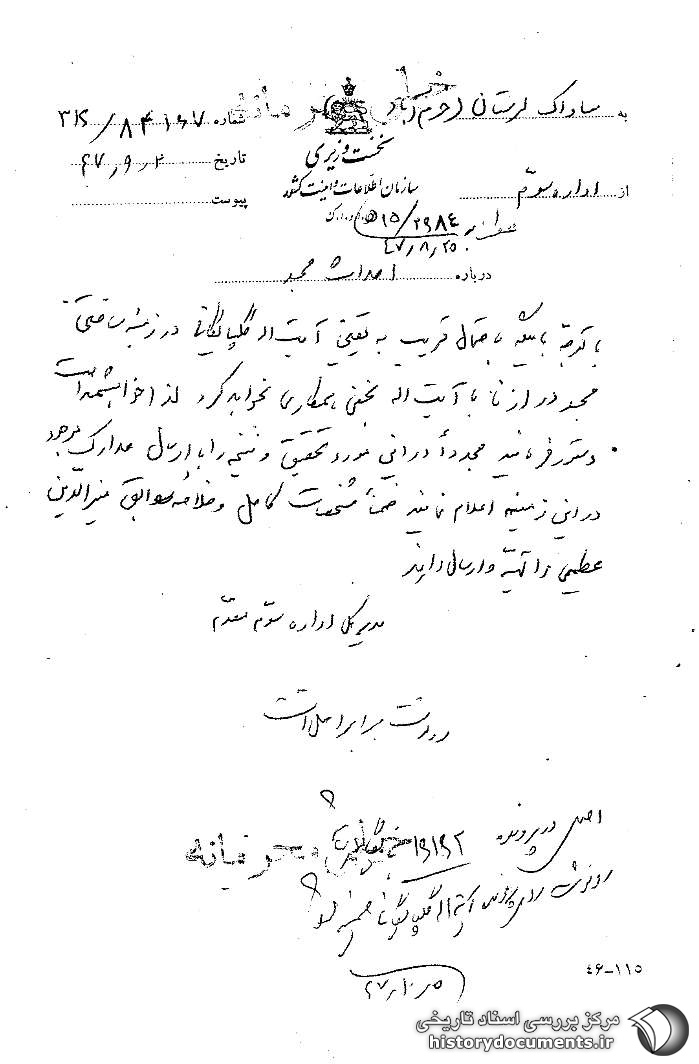 به ساواک لرستان (خرم آباد)
شماره ۸۴۱۶۷/۳۱۲
خیلی محرمانه
نخست وزیری
سازمان اطلاعات و امنیت کشور
از اداره سوم
تاریخ ۴۷٫۹٫۲
پیوست
۱۵/۲۹۸۴
۴۷٫۸٫۲۵
درباره احداث مسجد
با توجه باینکه باحتمال قریب به یقین آیت اله گلپایگانی در زمینه ساختن
مسجد در ازنا با آیت اله نجفی همکاری نخواهد کرد لذا خواهشمند است
دستور فرمائید مجدداً در این مورد تحقیق و نتیجه را با ارسال مدارک موجود
در این زمینه اعلام نمایند ضمناً مشخصات کامل و خلاصه سوابق منیرالدین
عظیمی را تهیه و ارسال دارند
مدیر کل اداره سوم مقدم
رونوشت برابر اصل است
اصل در پرونده
خیلی محرمانه
رونوشت روی پرونده آیت اله گلپایگانی ضمیمه شود
۴۶-۱۱۵
مرکز بررسی اسناد تاریخی
historydocuments.ir